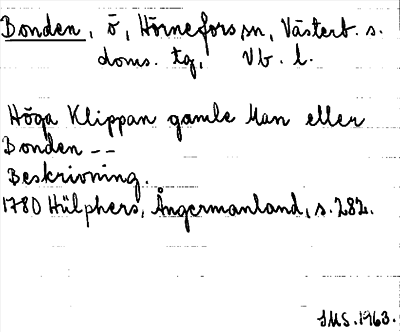 Bonden, ö, Hörnefors sn, Västerb. s.
doms. tg, Vb. l.
Höga Klippan gamle Man eller
Bonden --
Beskrivning.
1780 Hülphers, Ångermanland, s. 282.
SMS. 1963.